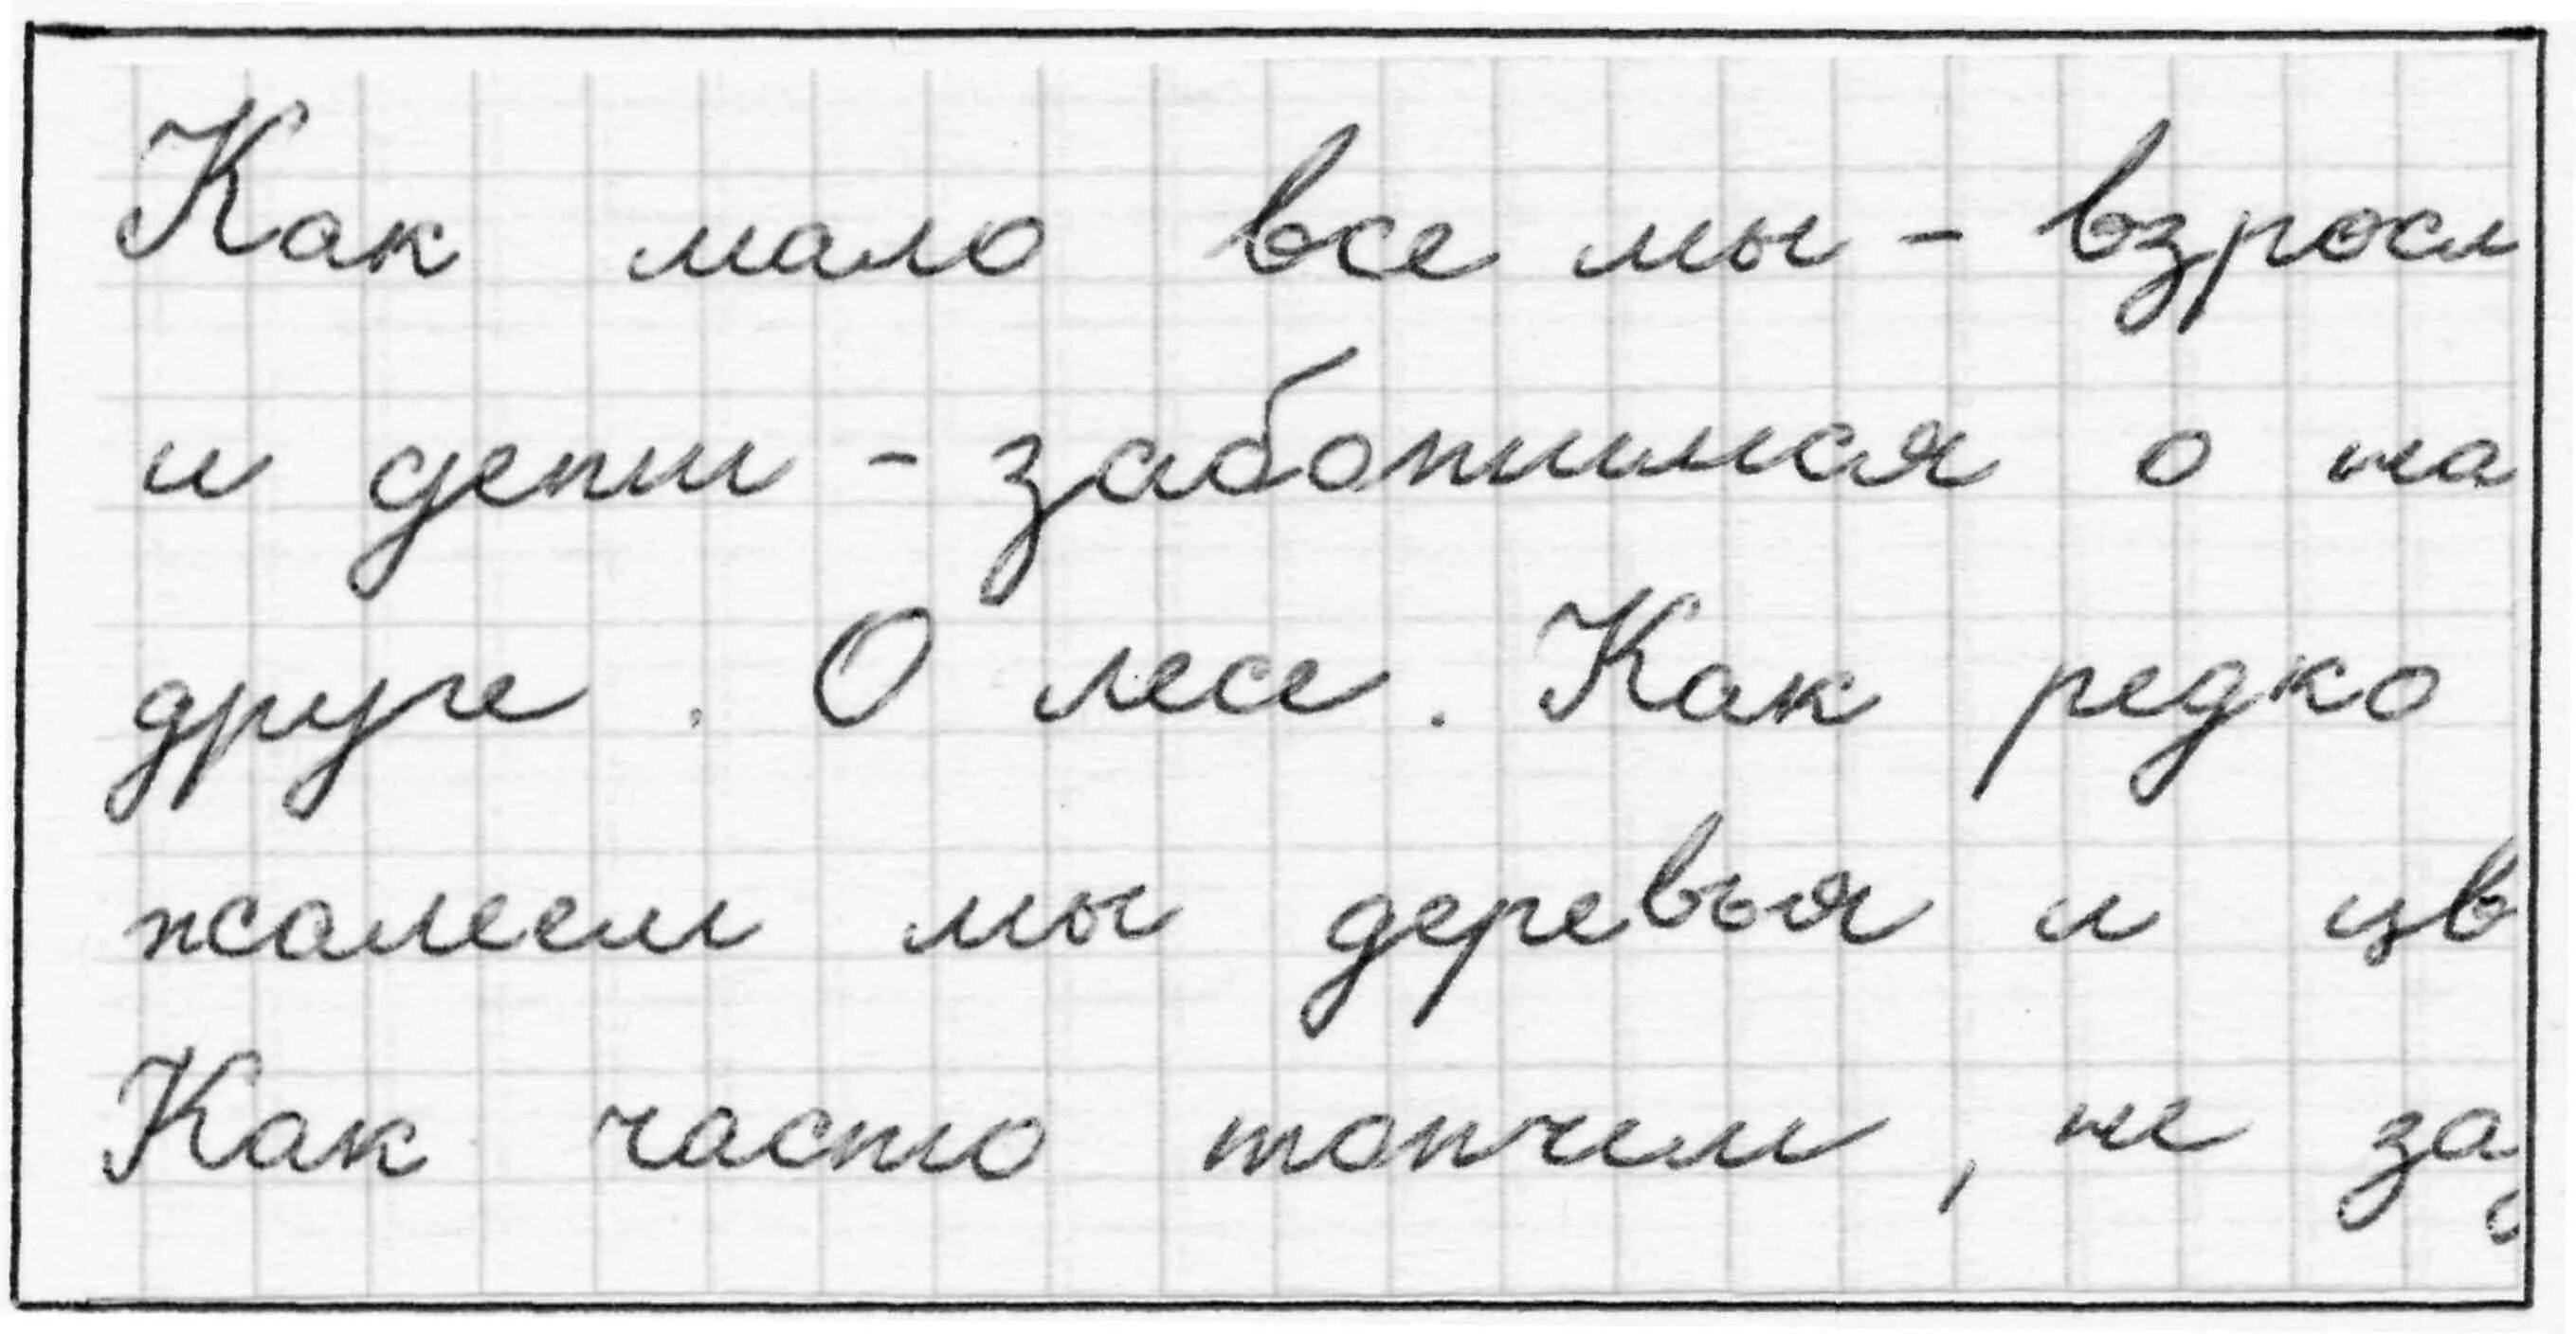 Как мало все мы - взросл
и дети - заботимся о на
друге . О лесе . Как редко
жалеем мы деревья и цв
Как часто топчем , не зад